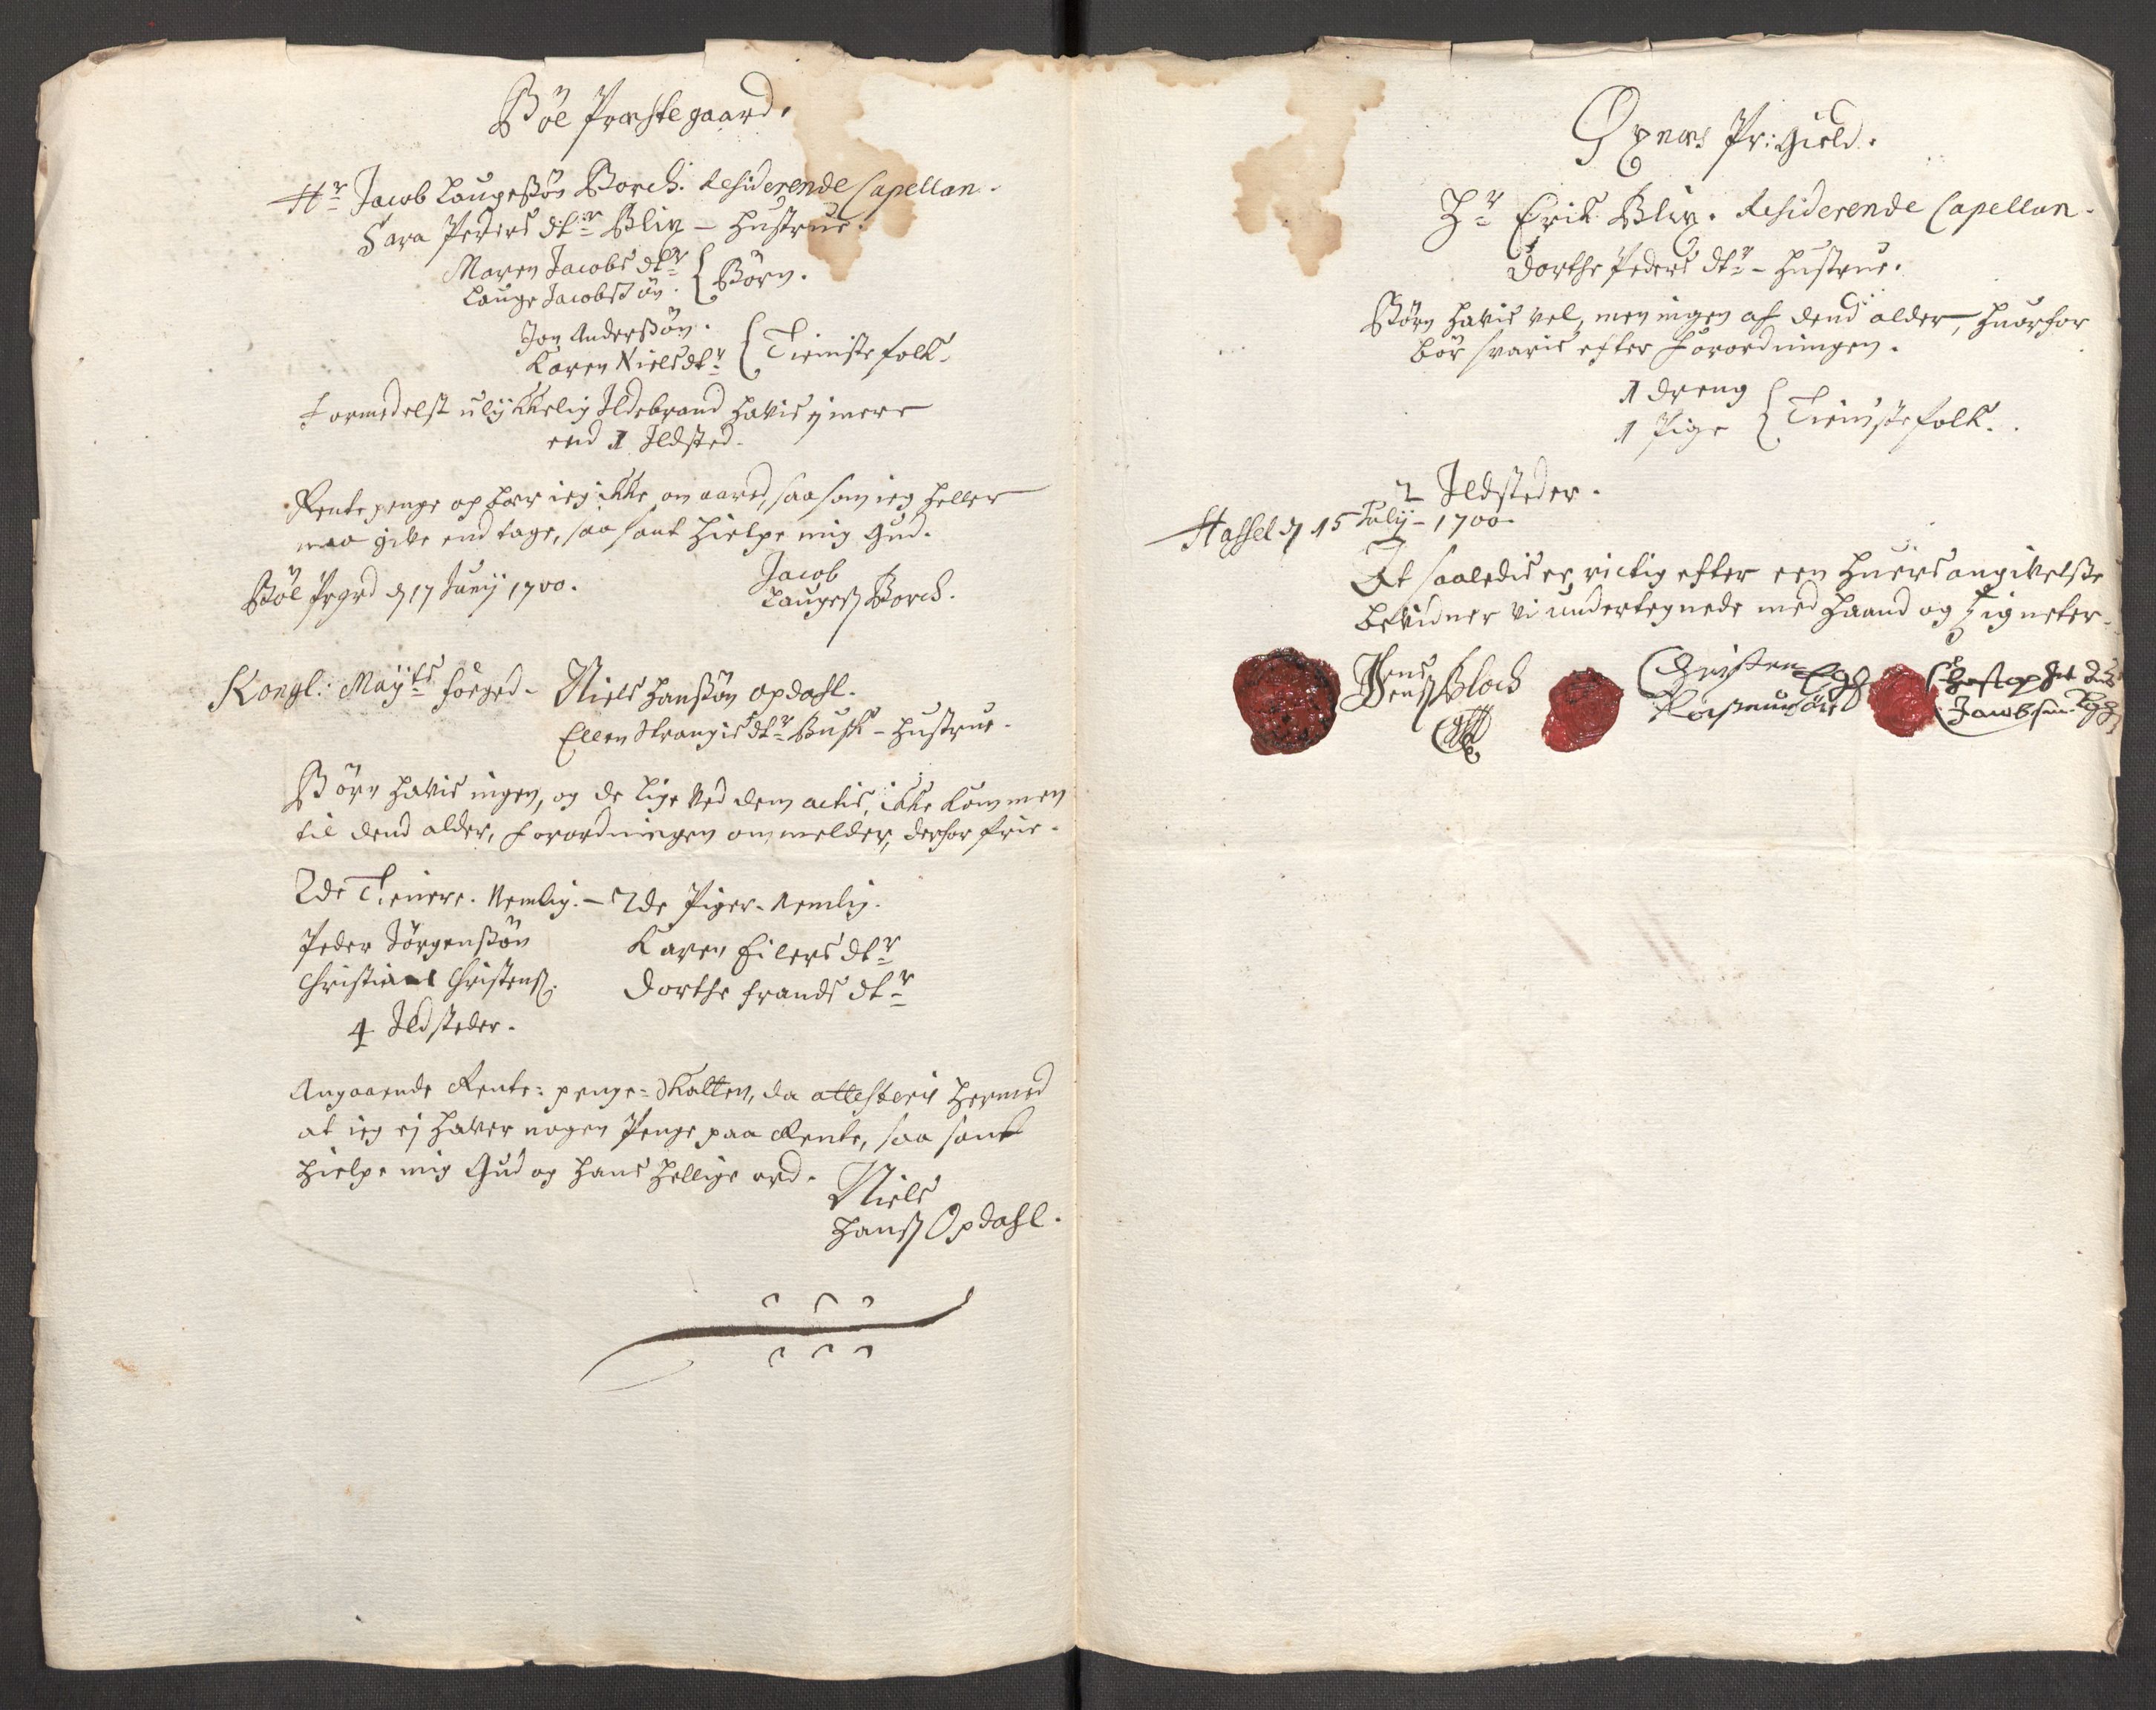 Böe Præstegaard.
Hr. Jacob Laugessøn Borch. Residerende Capellan.
Sara Peders dtr. Blix – Hustrue.
Maren Jacobs dtr.
Lauge Jacobssøn. } Börn.
Jon Anderssøn.
Karen Nielsdtr. } Tieniste folk.
Formedelst ulykkelig Ildebrand havis ej mere
end 1 Ildsted.
Rente penge opbær ieg ikke om aaret, saa som ieg heller
maa give end tage, saa sant hielpe mig Gud.
Böe Prgrd d 17 Junij 1700.
Jacob
Laugesß Borch.
Kongl: Mayts. foeged – Niels Hanssøn Opdahl.
Ellen Strangis dtr. Busk – Hustrue.
Börn havis ingen, og de Lige ved dem actis, ikke kommen
til dend alder, forordningen ommelder, derfor frie.
2de Tienere. Nemlig. – 2de Piger. Nemlig.
Peder Jörgenssøn Karen Eilers dtr.
Christian Christensß. Dorthe Frands dtr.
4 Ildsteder.
Angaaende Rente-penge-Skatten, da attesteris hermed
at ieg ej haver nogen Penge paa Rente, saa sant
hielpe mig Gud og hans hellige ord.
Niels
Hansß Opdahl.
Øxnæs Pr: Gield.
Hr. Erik Blix. Residerende Capellan.
Dorthe Peders dtr. – Hustrue.
Börn havis vel, men ingen af dend alder, huorfor
bör svaris efter forordningen.
1 Dreng
1 Pige } Tieniste folk.
2 Ildsteder.
Hassel d 15 Julij – 1700.
At saaledis er rictig efter een huers angivelsse
bevidner vi undertegnede med haand og Zigneter.
Jens
Jensß Bloch
Christen
Rasmussøn Egh
Jacobsen